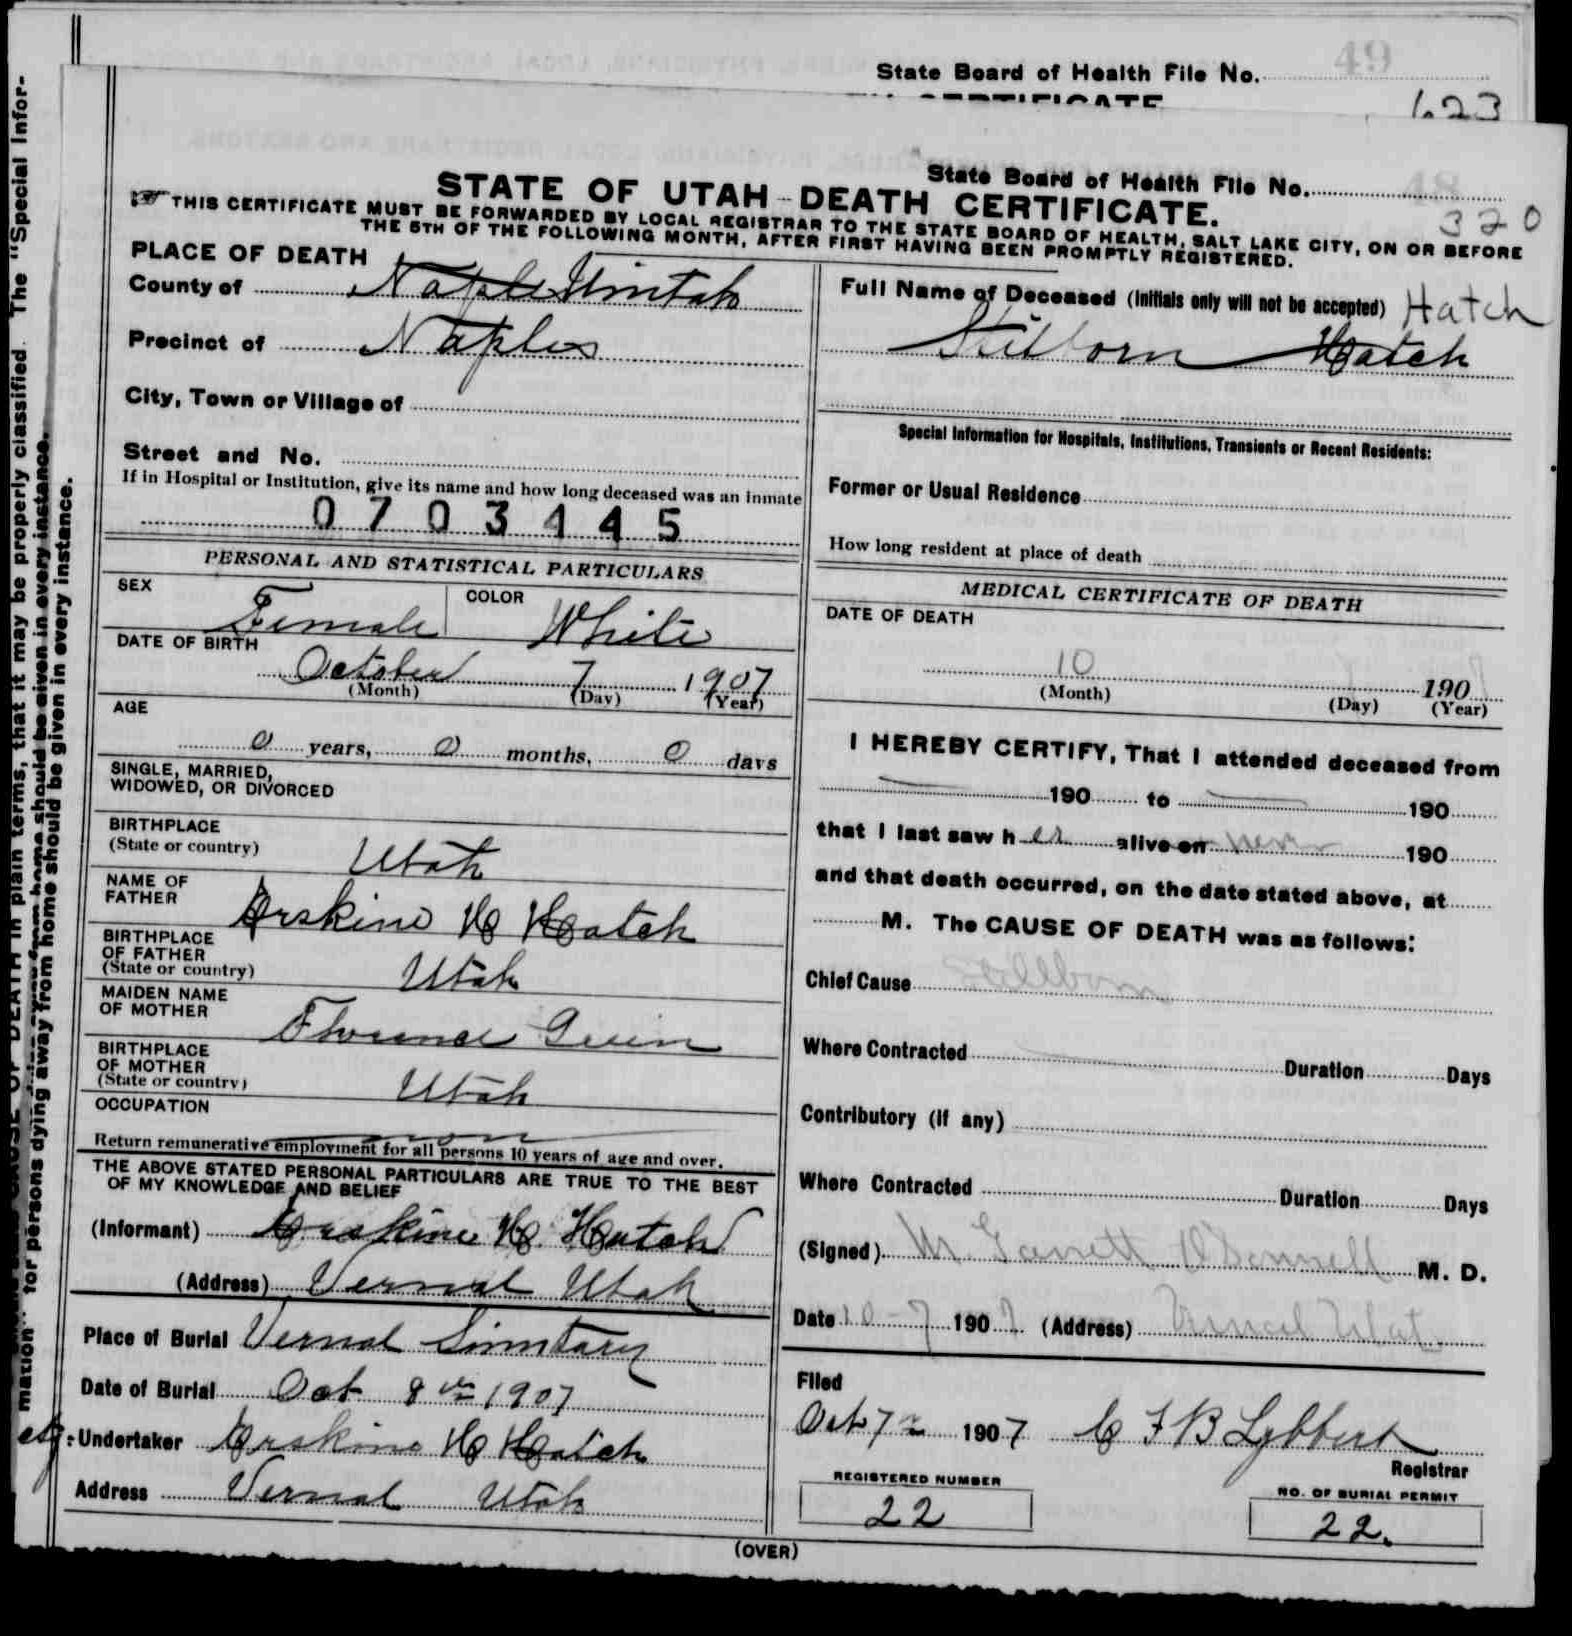 49
State Board of Health File No.
623
State Board of Health File No.
48
STATE OF UTAH–DEATH CERTIFICATE.
320
THIS CERTIFICATE MUST BE FORWARDED BY LOCAL REGISTRAR TO THE STATE BOARD OF HEALTH, SALT LAKE CITY, ON OR BEFORE
THE 5TH OF THE FOLLOWING MONTH, AFTER FIRST HAVING BEEN PROMPTLY REGISTERED.
PLACE OF DEATH
County of Naples Uintah
Precinct of Naples
City, Town or Village of
Street and No.
If in Hospital or Institution, give its name and how long deceased was an inmate
0703445
PERSONAL AND STATISTICAL PARTICULARS
SEX Female COLOR White
DATE OF BIRTH
October 7 1907
(Month) (Day) (Year)
AGE
0 years, 0 months, 0 days
SINGLE, MARRIED,
WIDOWED, OR DIVORCED
BIRTHPLACE
(State or country) Utah
NAME OF
FATHER Erskine H Hatch
BIRTHPLACE
OF FATHER
(State or country) Utah
MAIDEN NAME
OF MOTHER Florence Green
BIRTHPLACE
OF MOTHER
(State or country) Utah
OCCUPATION
non
Return remunerative employment for all persons 10 years of age and over.
THE ABOVE STATED PERSONAL PARTICULARS ARE TRUE TO THE BEST
OF MY KNOWLEDGE AND BELIEF
(Informant) Erskine H. Hatch
(Address) Vernal Utah
Place of Burial Vernal Simitary
Date of Burial Oct 8th 1907
Undertaker Erskine H Hatch
Address Vernal Utah
Full Name of Deceased (Initials only will not be accepted) Hatch
Stilborn Hatch
Special Information for Hospitals, Institutions, Transients or Recent Residents:
Former or Usual Residence
How long resident at place of death
MEDICAL CERTIFICATE OF DEATH
DATE OF DEATH
10 7 1907
(Month) (Day) (Year)
I HEREBY CERTIFY, That I attended deceased from
190 to 190
that I last saw her alive on never 190
and that death occurred, on the date stated above, at
M. The CAUSE OF DEATH was as follows:
Chief Cause Stillborn
Where Contracted Duration Days
Contributory (if any)
Where Contracted Duration Days
(Signed) M. Garrett O'Donnell M. D.
Date 10-7 1907 (Address) Vernal Utah
Filed
Oct 7th 1907 C F B Lybbert
Registrar
REGISTERED NUMBER
22
NO. OF BURIAL PERMIT
22.
(OVER)
mation" for persons dying away from home should be given in every instance.
CAUSE OF DEATH in plain terms, that it may be properly classified. The "Special Infor-